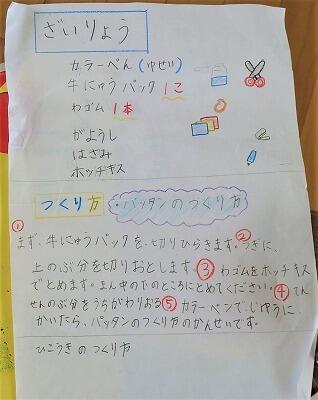 ざいりょう
カラーぺん(ゆせい)
牛にゅうパック 1こ
わゴム 1本
がようし
はさみ
ホッチキス
つくり方 ・パッタンのつくり方
①まず、牛にゅうパックを、切りひらきます。②つぎに、
上のぶ分を切りおとします。③わゴムをホッチキス
でとめます。まん中の下のところにとめてください。④てん
せんのぶ分をうちがわりおる⑤カラーペンでじゆうに、
かいたら、パッタンのつくり方のかんせいです。
ひこうきのつくり方